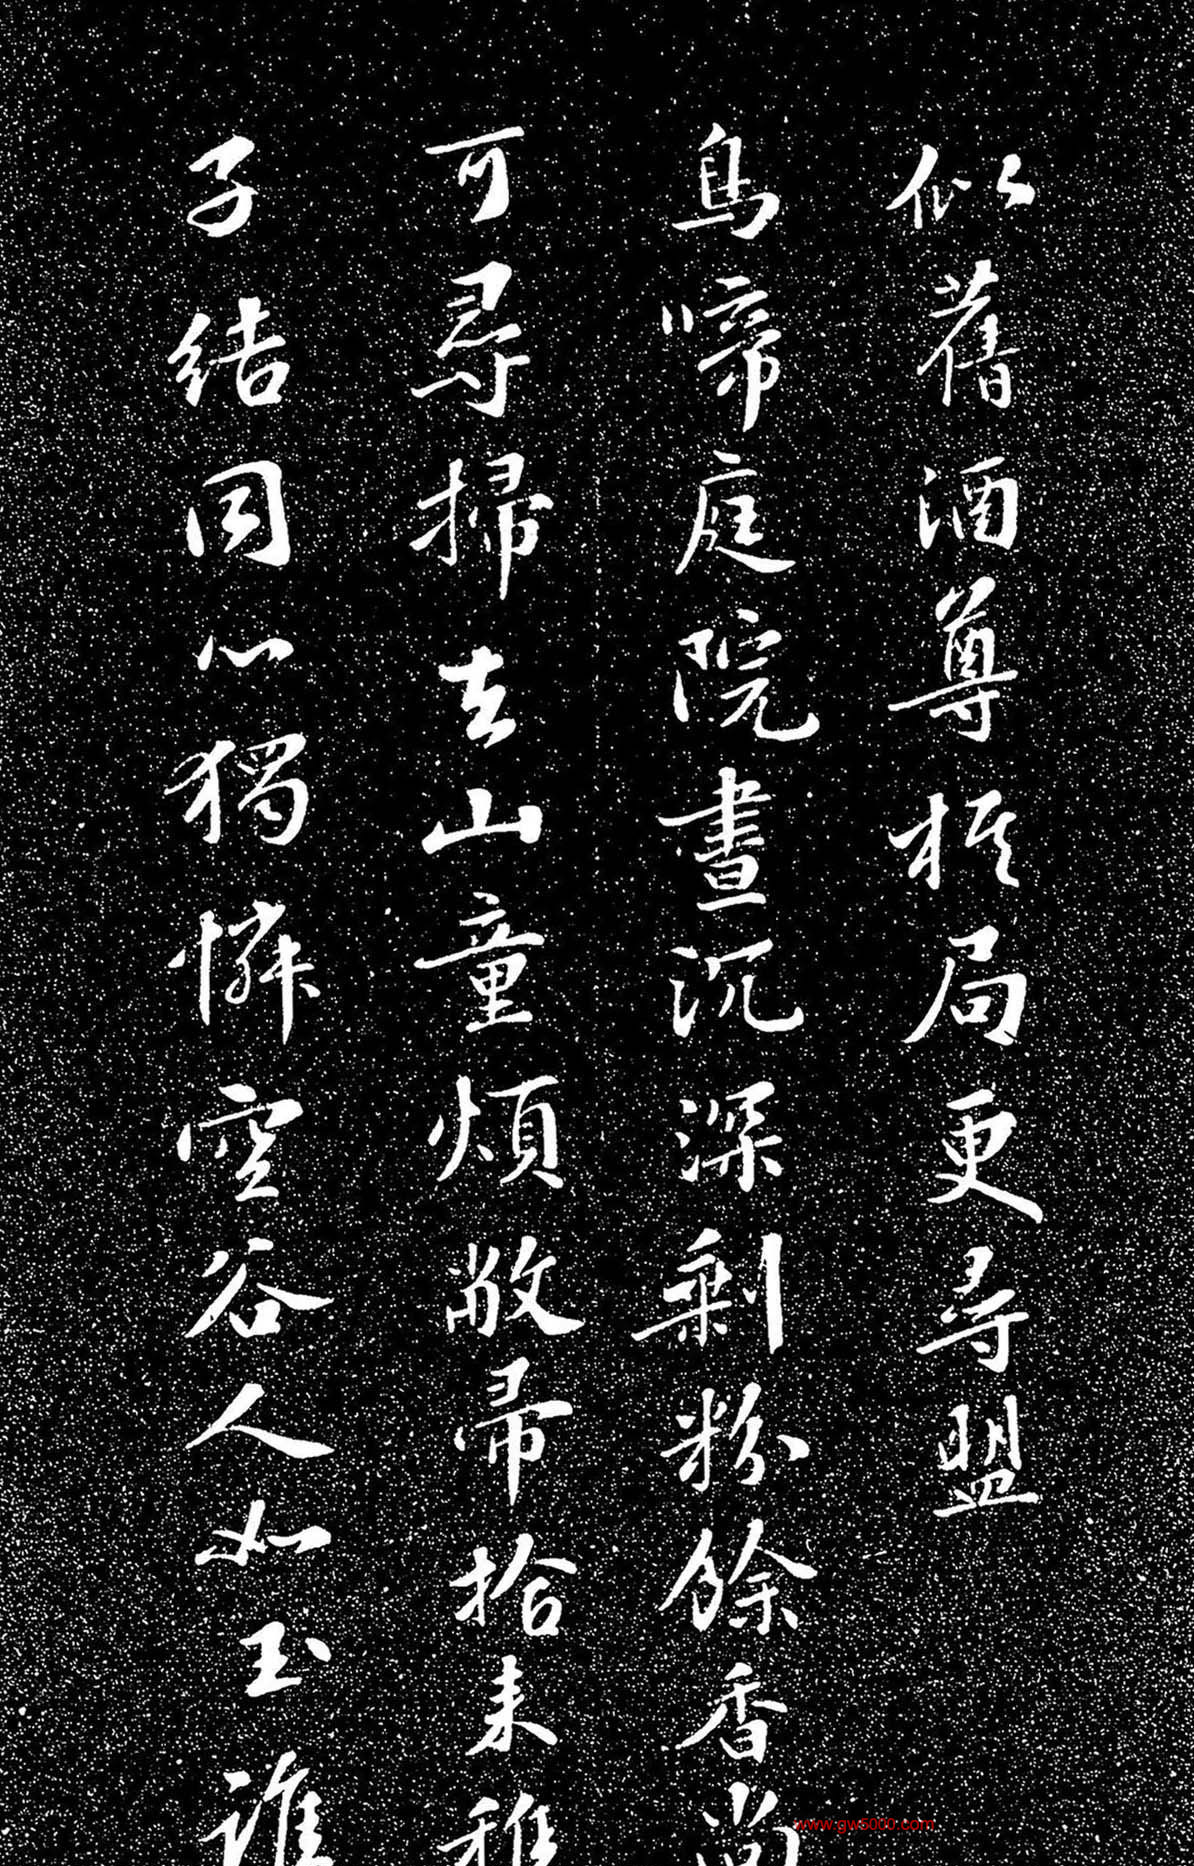 似舊酒尊棋局更尋盟
鳥啼庭院晝沉深剩粉餘香尚
可尋掃去山童煩敝帚拾來稚
子結同心獨憐空谷人如玉誰
www.gw5000.com